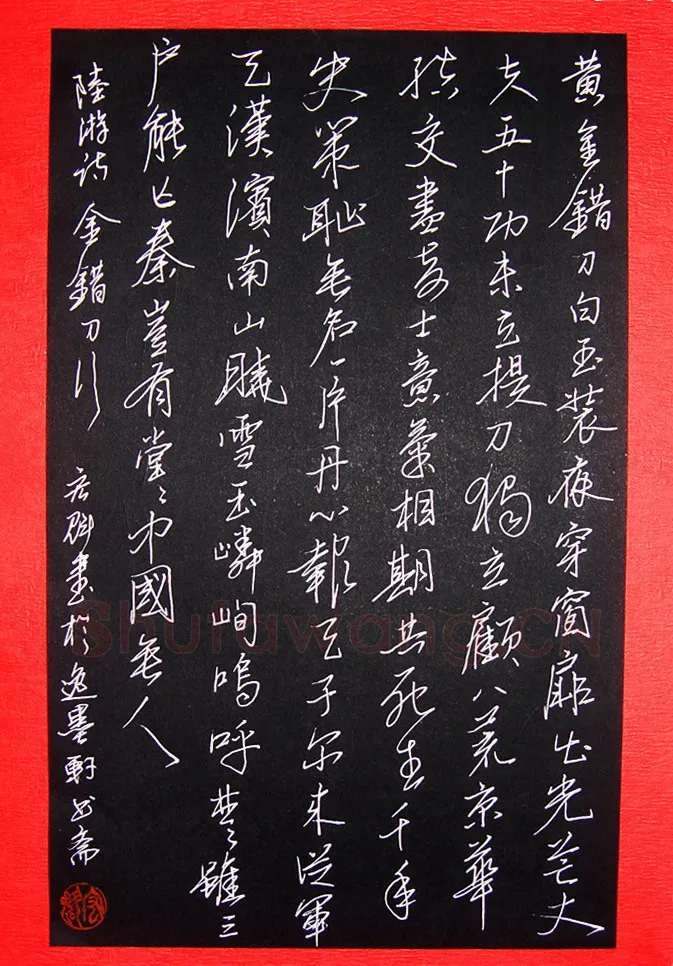 黄金錯刀白玉装夜穿窗扉出光芒丈
夫五十功未立提刀獨立顧八荒京華
結交盡奇士意氣相期共死生千年
史策恥無名一片丹心報天子尔来從軍
天漢濱南山曉雪玉嶙峋嗚呼楚雖三
户能亡秦豈有堂々中國無人
陸游詩金錯刀行 書於逸墨軒書斋
Shufawang.Cn